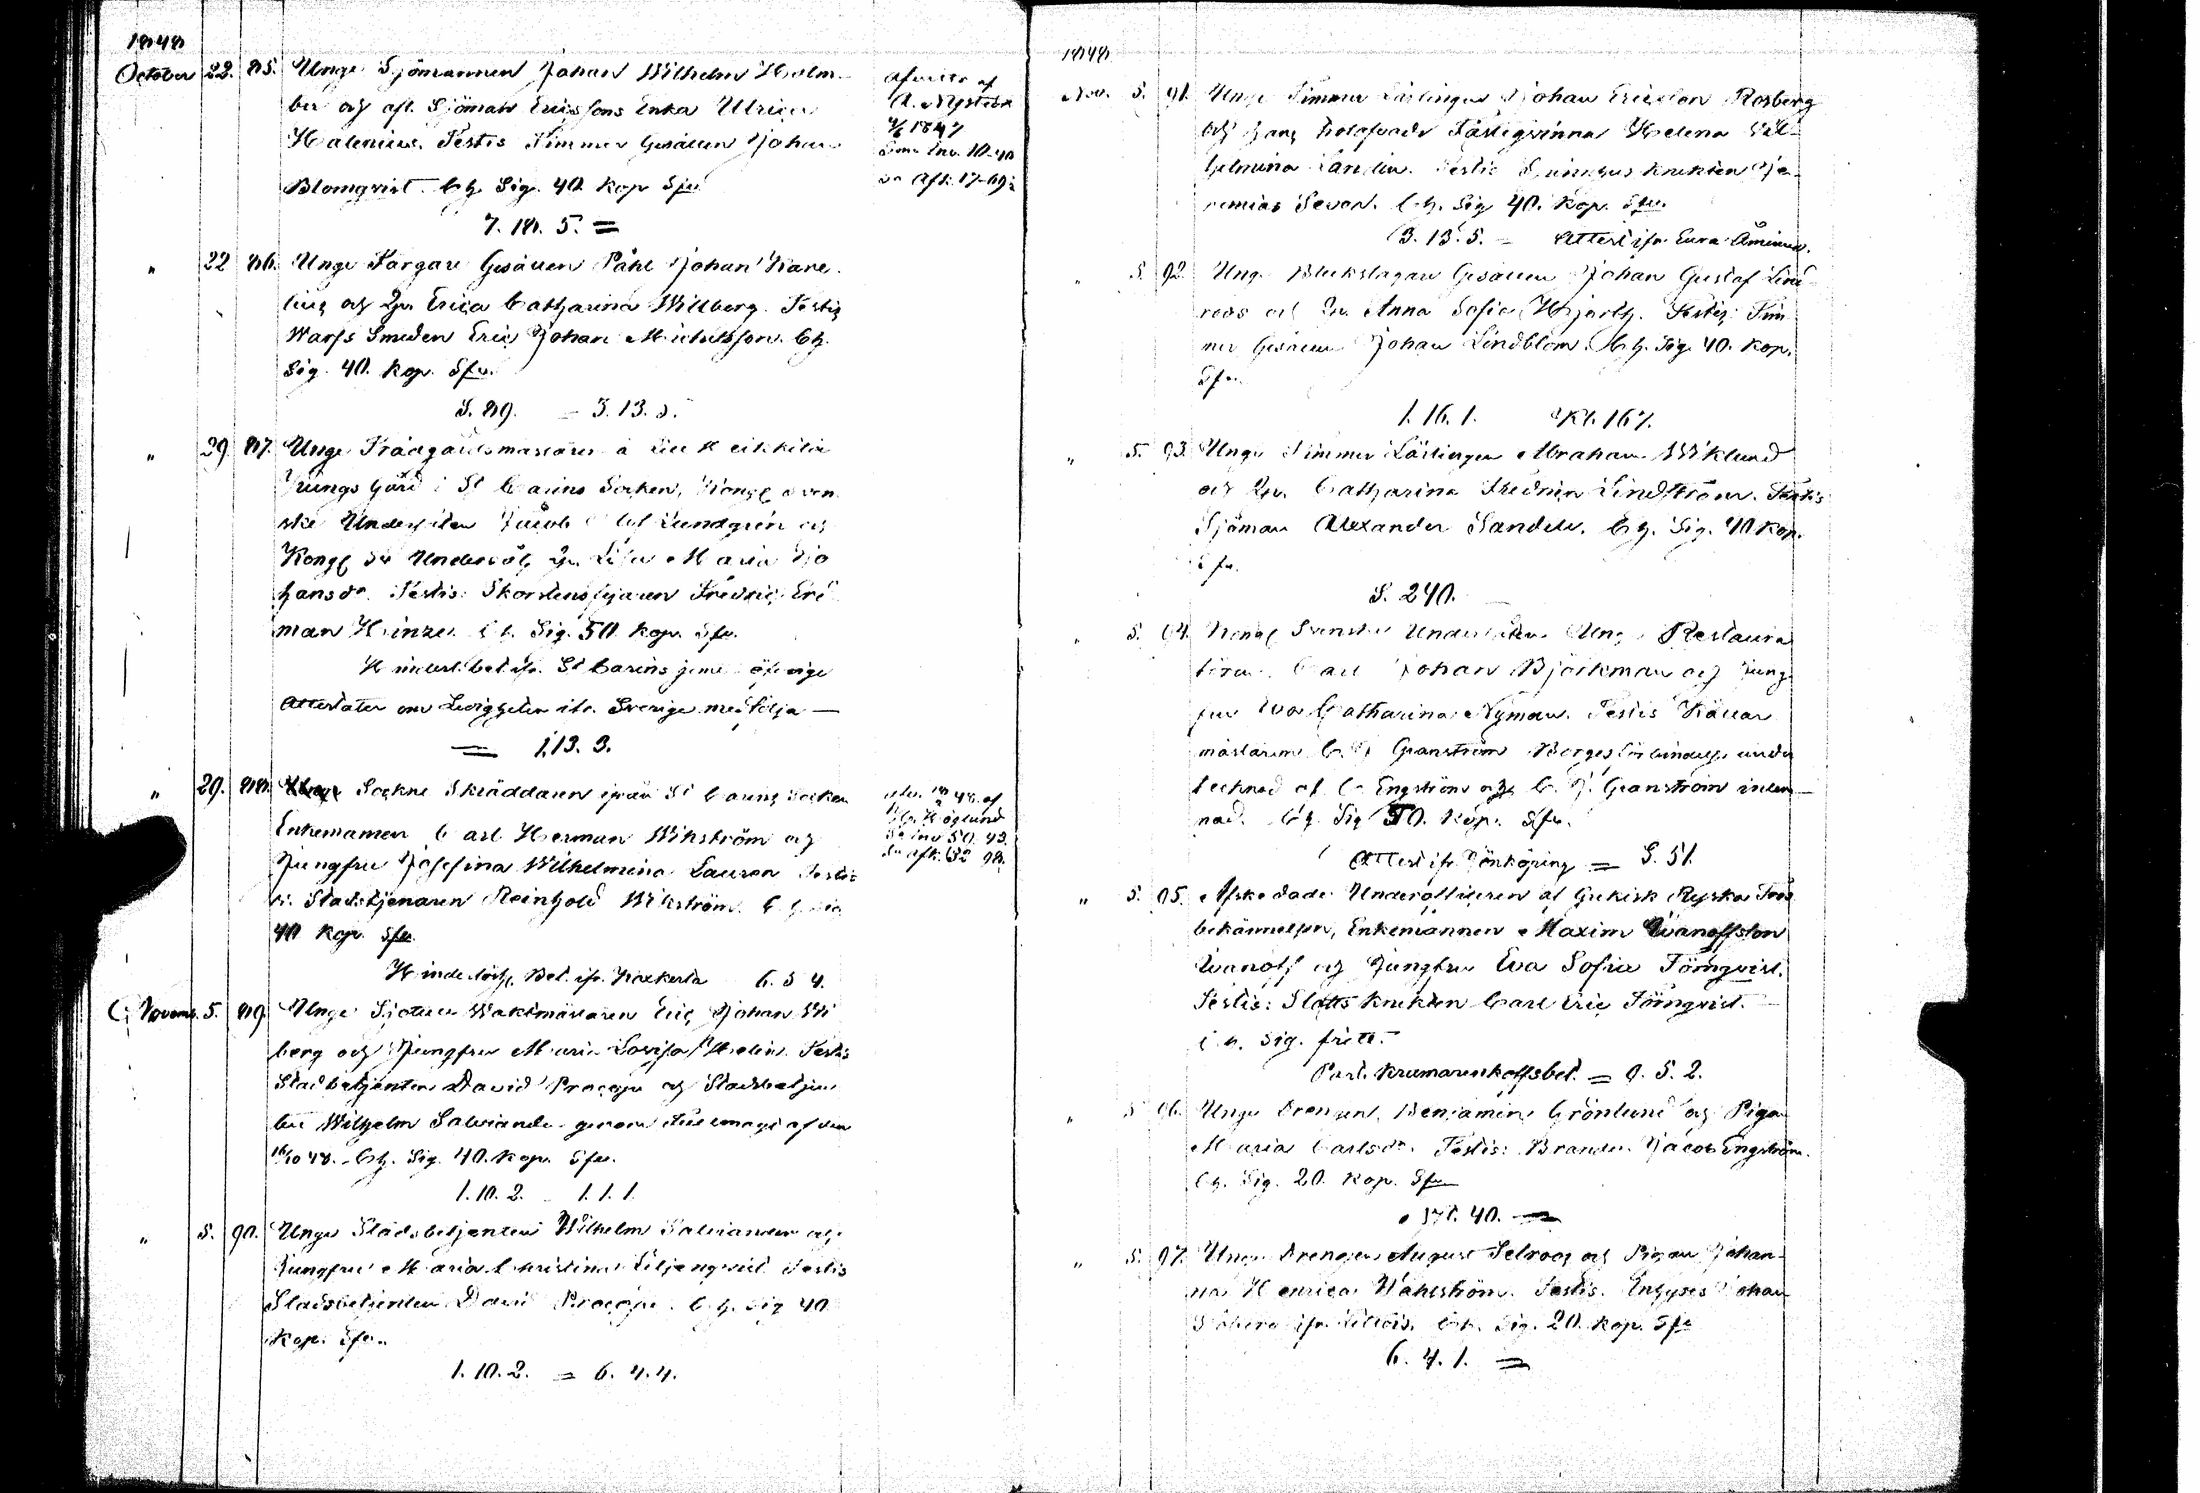 1848
October 22. 85. Unge Sjömannen Johan Wilhelm Holm-
ber och afl. Sjöman Ericssons Enka Ulrica
Halenius. Testis Timmer Gesällen Johan
Blomqvist. Ch. Sig. 40. Kop Sfr
7. 18. 5. =
afvitt. af
A. Nyström
1847
10-40
17-69
" 22 86. Unge Färgare Gesällen Påhl Johan Kare-
lius och Jgfr. Erica Catharina Willberg. Testis
Warfs Smeden Eric Johan Michelsson. Ch.
Sig. 40. Kop. Sfr.
S. 89. = 3. 13.
" 29 87. Unge Trädgårdsmästaren å Heikkilä
Kungs Gård i St Carins Socken, Kongl Sven-
ske Undersåten Jacob Lundgren och
Kongl Sv Undersåt. Jgfr. Lisa Maria Jo-
hansdr. Testis: Skorstensfejaren Fredric Er
man Hinze. Ch. Sig. 50. Kop. Sfr.
Hinderl. bet. ifr. St Carins jemte öfrige
Attestater om Ledigheten ifr. Sverige medfölja —
= 113. 3.
" 29. 88. Sockne Skräddaren ifrån St Carins Socken
Enkemannen Carl Herman Wikström och
Jungfru Josefina Wilhelmina Lauren Testis
Stadstjenaren Reinhold Wikström. Ch. Sig
40 Kop. Sfr.
Hinderlösh. Bet. ifr. 6. 5 4.
48. af
Höglund
inv 50. 43.
afk. 62 98.
Novemb. 5. 89. Unge Waktmästaren Eric Johan Wi
berg och Jungfru Maria Lovisa Helin. Testis
Stadsbetjenten David Procope och Stadsbetjen-
ten Wilhelm Salviander genom af den
16/10 48. Ch. Sig. 40. Kop. Sfr.
1. 10. 2. 1. 1. 1.
" 5. 90. Unge Stadsbetjenten Wilhelm Salviander och
Jungfru Maria Christina Liljenqvist Testis
Stadsbetjenten David Procope. Ch. Sig 40
Kop. Sfr.
1. 10. 2. = 6. 4. 4.
1848
Nov. 5. 91. Unge Timmer Lärlingen Johan Ericsson Rosberg
och hans trolofvade Fästeqvinna Helena Wil-
helmina Landin. Testis Knekten Je-
remias Sevon. Ch. Sig 40. Kop. Sfr.
3. 13. 5. = Attest ifr. Eura Åminne.
" 5. 92 Ung. Bleckslagare Gesällen Johan Gustaf Lind-
roos och Jgfr. Anna Sofia Hjorth. Testis: Tim
mer Gesällen Johan Lindblom. Ch. Sig. 40. Kop.
Sfr.
1. 16. 1. Kl. 167.
" 5. 93. Unge Timmer Lärlingen Abraham Wiklund
och Jgfr. Catharina Fredrica Lindström. Testis
Sjöman Alexander Sandell. Ch. Sig. 40 Kop.
Sfr.
S. 240.
" 5. 94. Kongl Svenske Undersåten Unge Restaura
tören Carl Johan Björkman och Jung-
fru Eva Catharina Nyman. Testis Källar
mästaren C. J. Granström Borgesförbindelse under
tecknad af C. Engström och C. J. Granström inlem-
nad. Ch. Sig 50. Kop. Sfr.
Attest ifr. Jönköping = S. 51.
" 5. 95. Afskedade Underofficeren af Grekisk Ryska Tros
bekännelsen, Enkemannen Maxim Iwanoffson
Iwanoff och Jungfru Eva Sofia Törnqvist.
Testis: Slotts Knekten Carl Eric Törnqvist.
Ch. Sig. fritt.
Past. Krumarenkoffs bet. = 9. 5. 2.
" 5 96. Unge Drengen Benjamin Grönlund och Pigan
Maria Carlsdr. Testis: Branden Jacob Engström.
Ch. Sig. 20. Kop. Sfr
40. =
" 5. 97. Unge Drengen August Selroos och Pigan Johan-
na Henrica Wahlström. Testis. Inhyses Johan
ifr. Littois. Ch. Sig. 20. Kop. Sfr
6. 4. 1. =